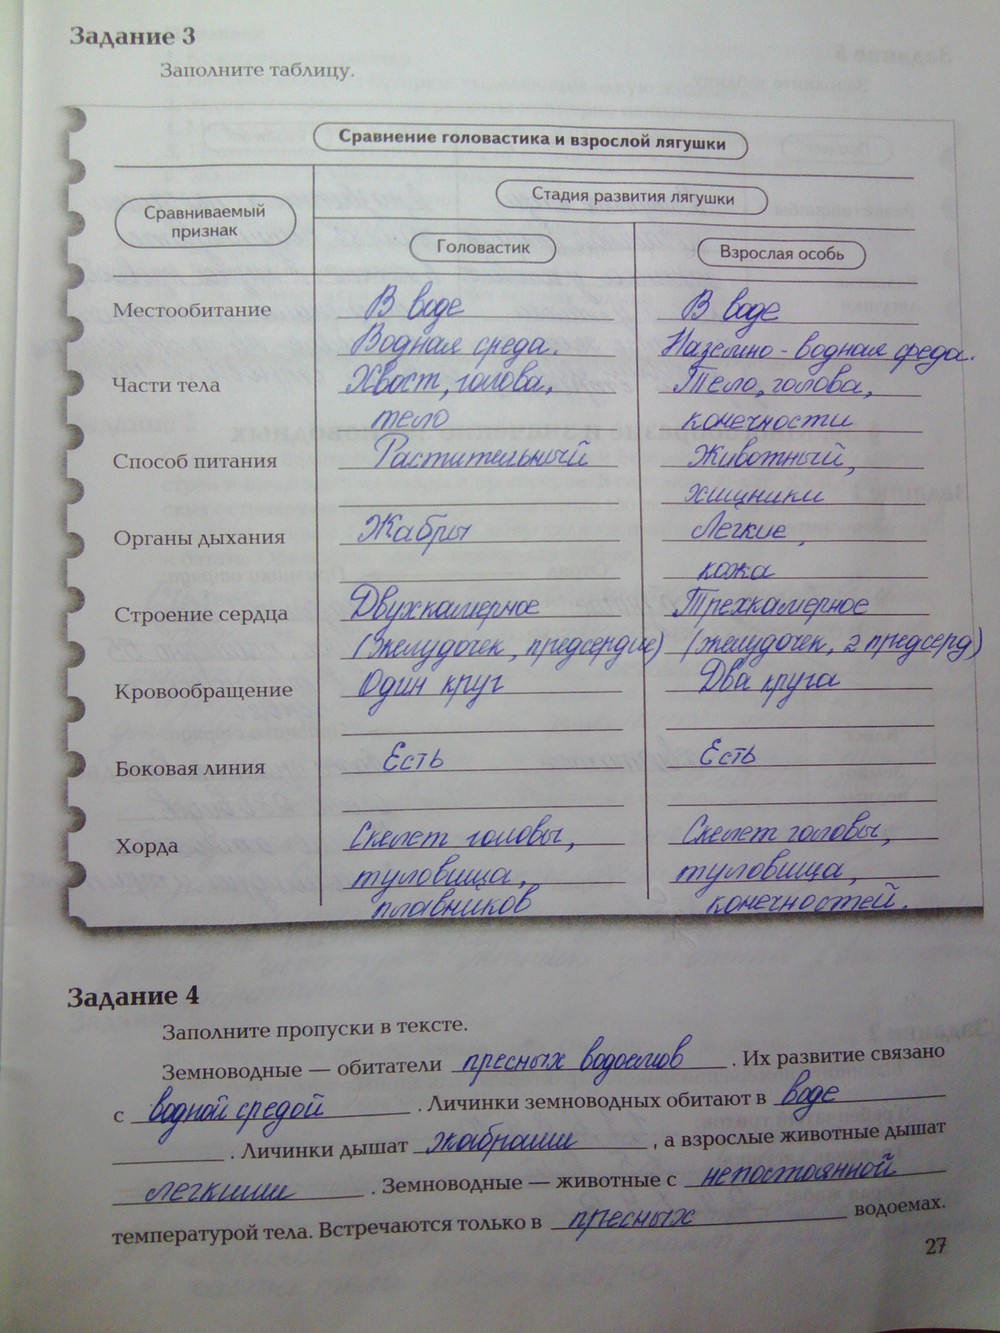 Задание 3
Заполните таблицу.
Сравнение головастика и взрослой лягушки
Сравниваемый признак
Стадия развития лягушки
Головастик
Взрослая особь
Местообитание
В воде
В воде
Водная среда.
Наземно - водная среда.
Части тела
Хвост, голова,
Тело, голова,
тело
конечности
Способ питания
Растительный
Животный,
хищники
Органы дыхания
Жабры
Легкие,
кожа
Строение сердца
Двухкамерное
Трехкамерное
(желудочек, предсердие)
(желудочек, 2 предсерд)
Кровообращение
Один круг
Два круга
Боковая линия
Есть
Есть
Хорда
Скелет головы,
Скелет головы,
туловища,
туловища,
плавников
конечностей.
Задание 4
Заполните пропуски в тексте.
Земноводные — обитатели пресных водоемов. Их развитие связано
с водной средой. Личинки земноводных обитают в воде
. Личинки дышат жабрами, а взрослые животные дышат
легкими. Земноводные — животные с непостоянной
температурой тела. Встречаются только в пресных водоемах.
27